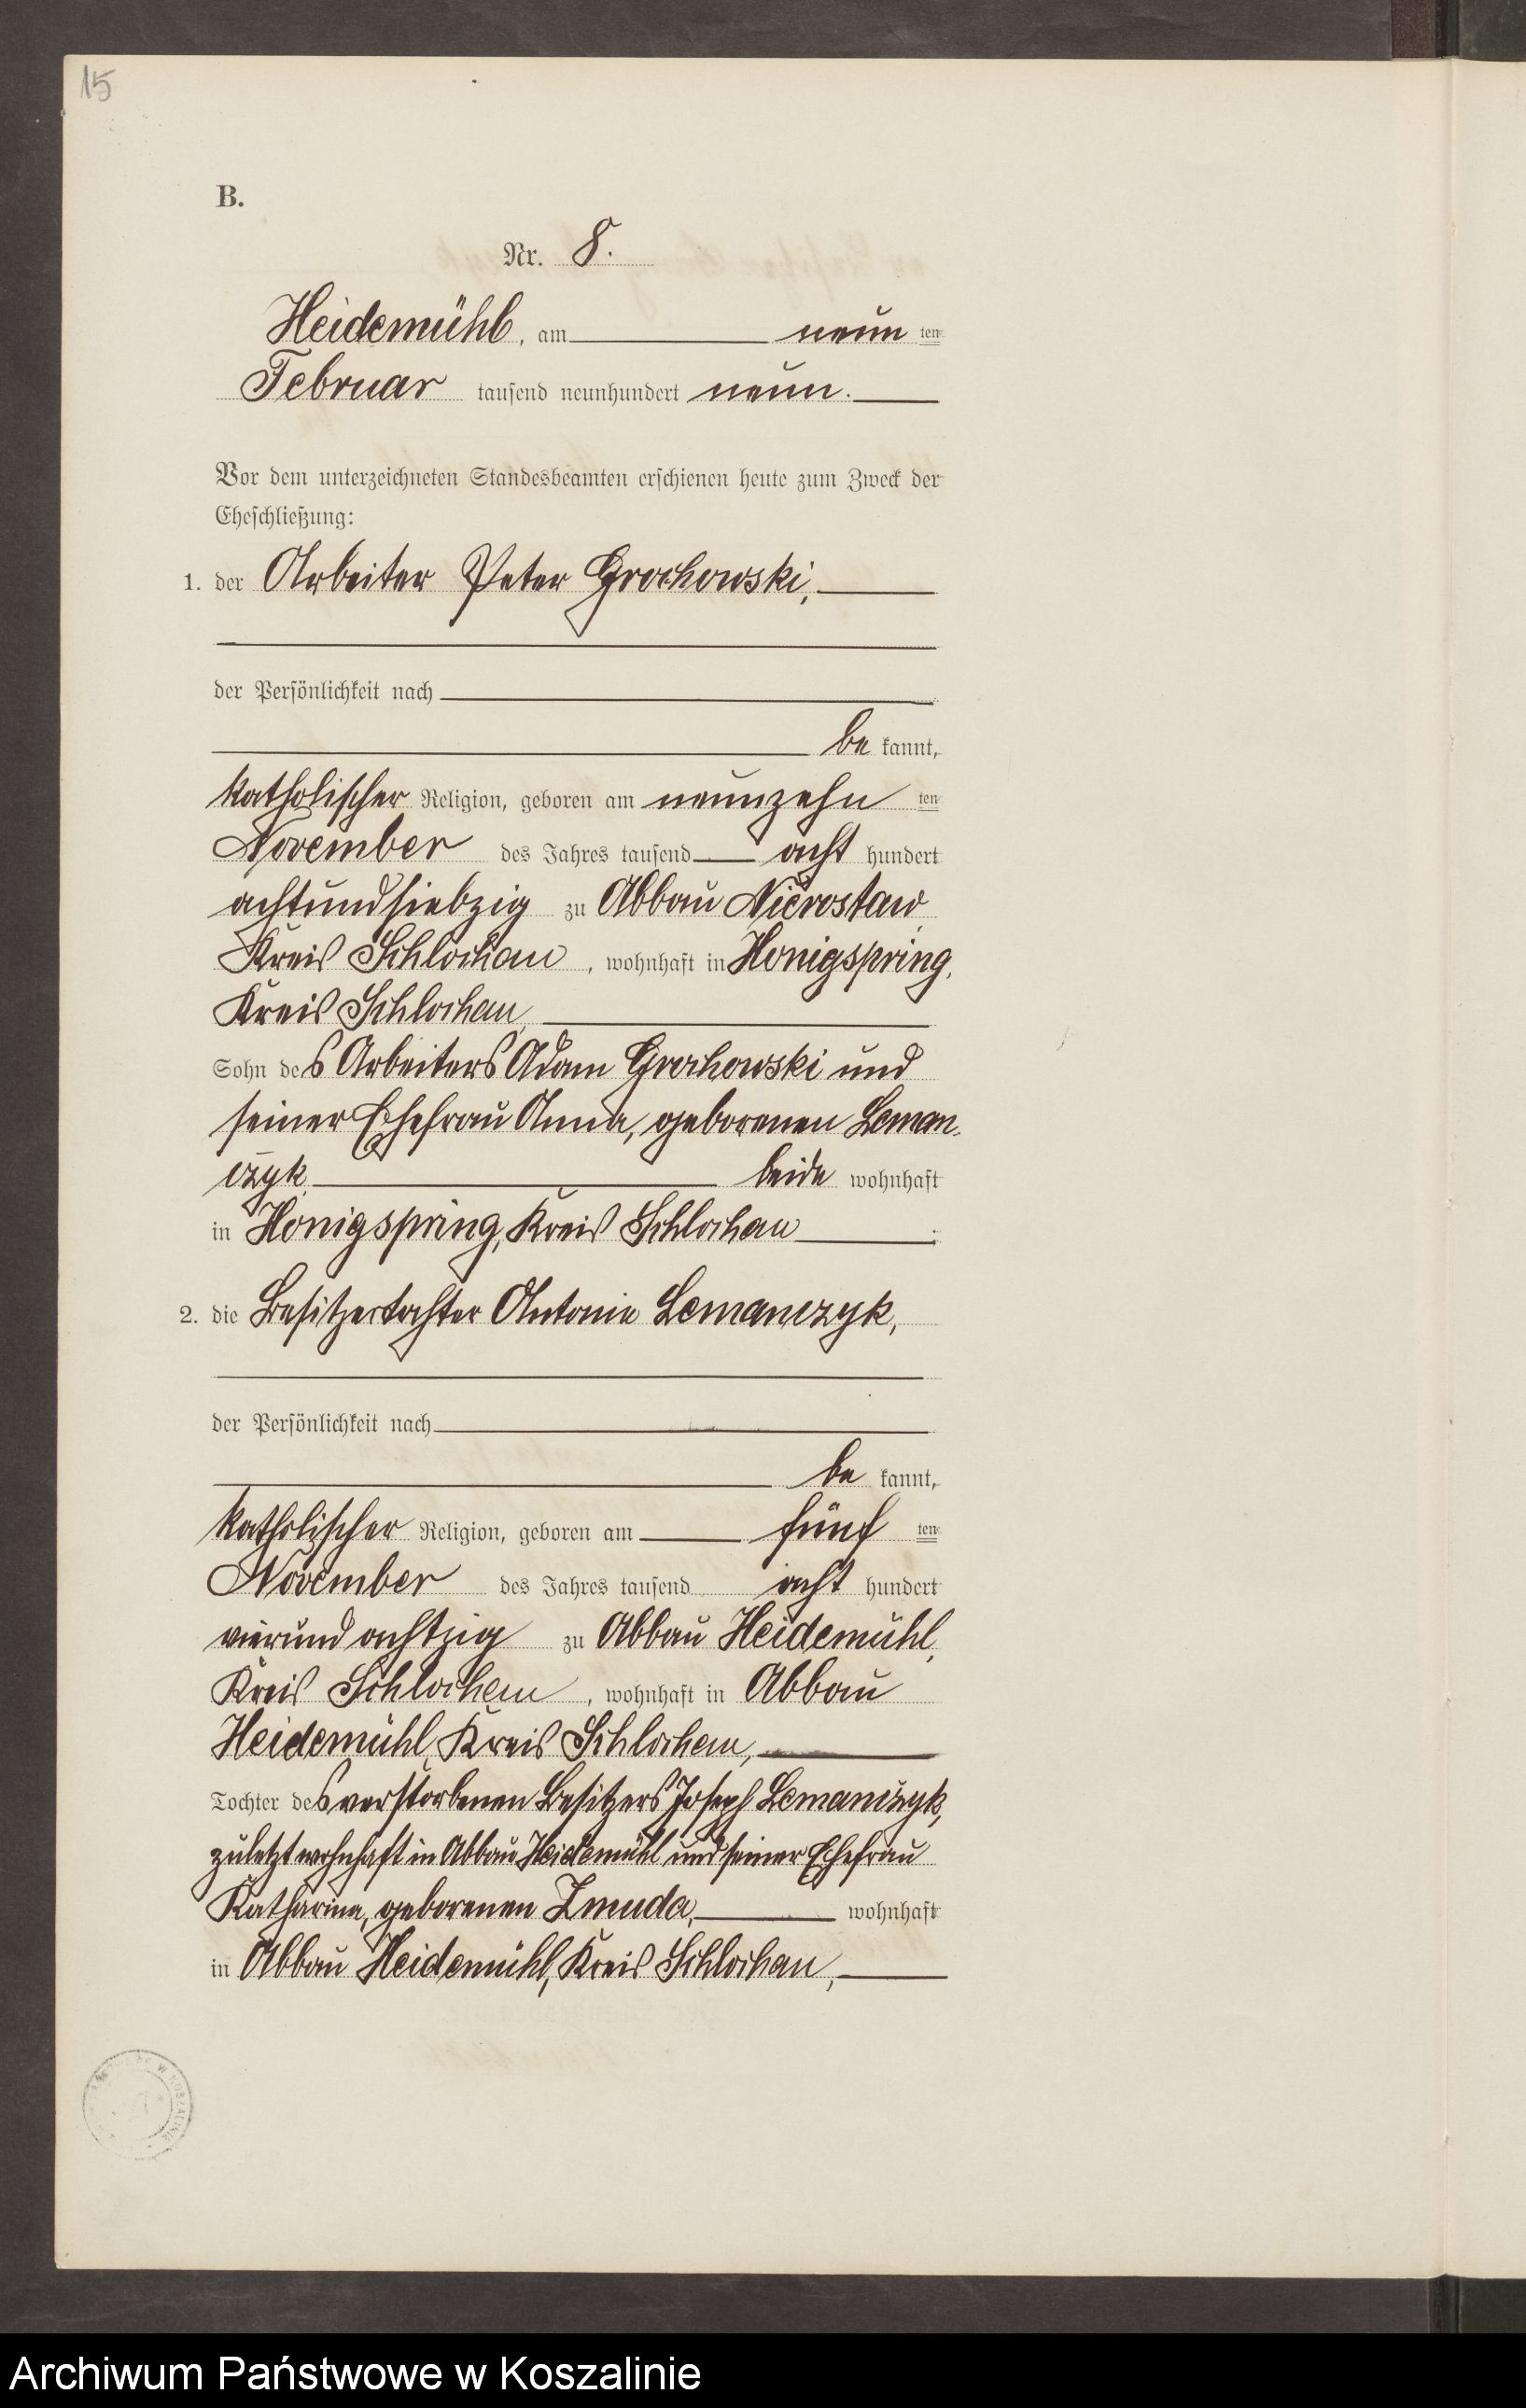 15
B.
Nr. 8.
Heidemühl, am neun ten
Februar tausend neunhundert neun.
Vor dem unterzeichneten Standesbeamten erschienen heute zum Zweck der
Eheschließung:
1. der Arbeiter Peter Grochowski,
der Persönlichkeit nach
be kannt,
katholischer Religion, geboren am neunzehn ten
November des Jahres tausend acht hundert
achtundsiebzig zu Abbau Nierostaw
Kreis Schlochau, wohnhaft in Honigspring,
Kreis Schlochau,
Sohn des Arbeiters Adam Grochowski und
seiner Ehefrau Anna, geborenen Leman-
czyk, beide wohnhaft
in Honigspring, Kreis Schlochau
2. die Besitzertochter Antonie Lemanczyk,
der Persönlichkeit nach
be kannt,
katholischer Religion, geboren am fünf ten
November des Jahres tausend acht hundert
vierundachtzig zu Abbau Heidemühl,
Kreis Schlochau, wohnhaft in Abbau
Heidemühl, Kreis Schlochau,
Tochter des verstorbenen Besitzers Joseph Lemanczyk,
zuletzt wohnhaft in Abbau Heidemühl und seiner Ehefrau
Katharina, geborenen Zmuda, wohnhaft
in Abbau Heidemühl, Kreis Schlochau,
W KOSZALINIE
Archiwum Państwowe w Koszalinie